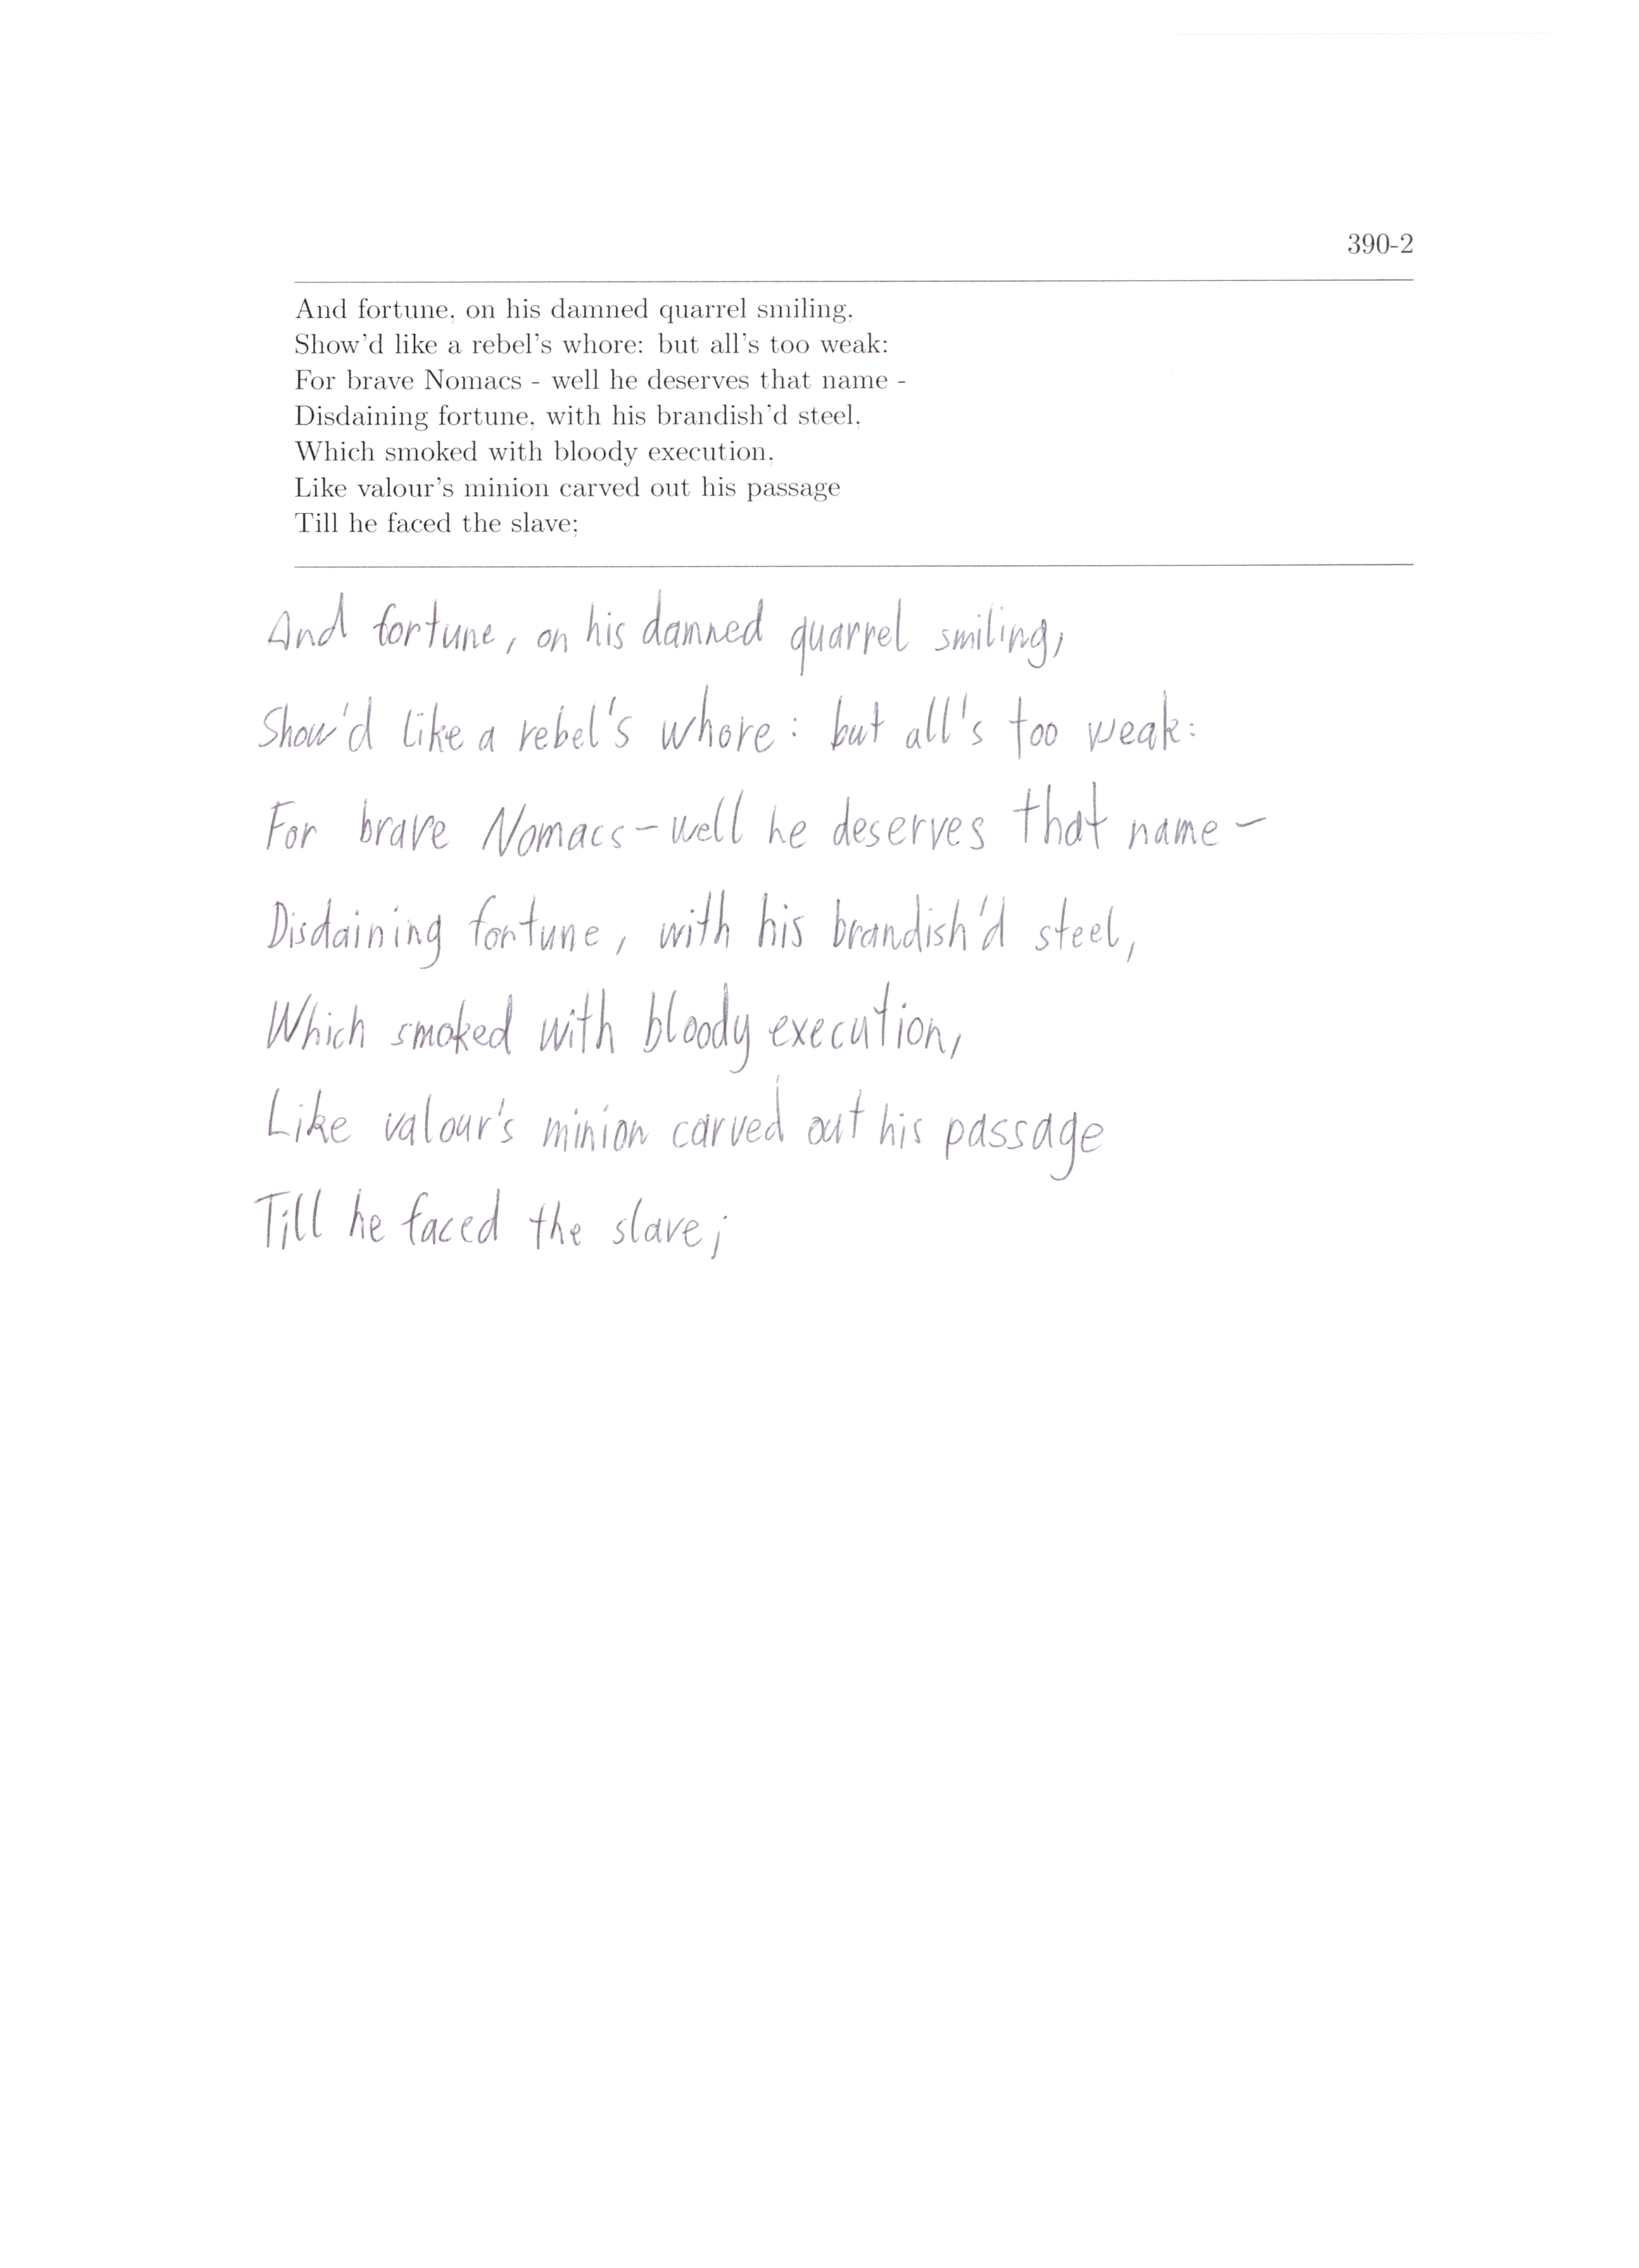 390-2
And fortune, on his damned quarrel smiling,
Show'd like a rebel's whore: but all's too weak:
For brave Nomacs - well he deserves that name -
Disdaining fortune, with his brandish'd steel,
Which smoked with bloody execution,
Like valour's minion carved out his passage
Till he faced the slave;
And fortune, on his damned quarrel smiling,
Show'd like a rebel's whore: but all's too weak:
For brave Nomacs - well he deserves that name -
Disdaining fortune, with his brandish'd steel,
Which smoked with bloody execution,
Like valour's minion carved out his passage
Till he faced the slave;